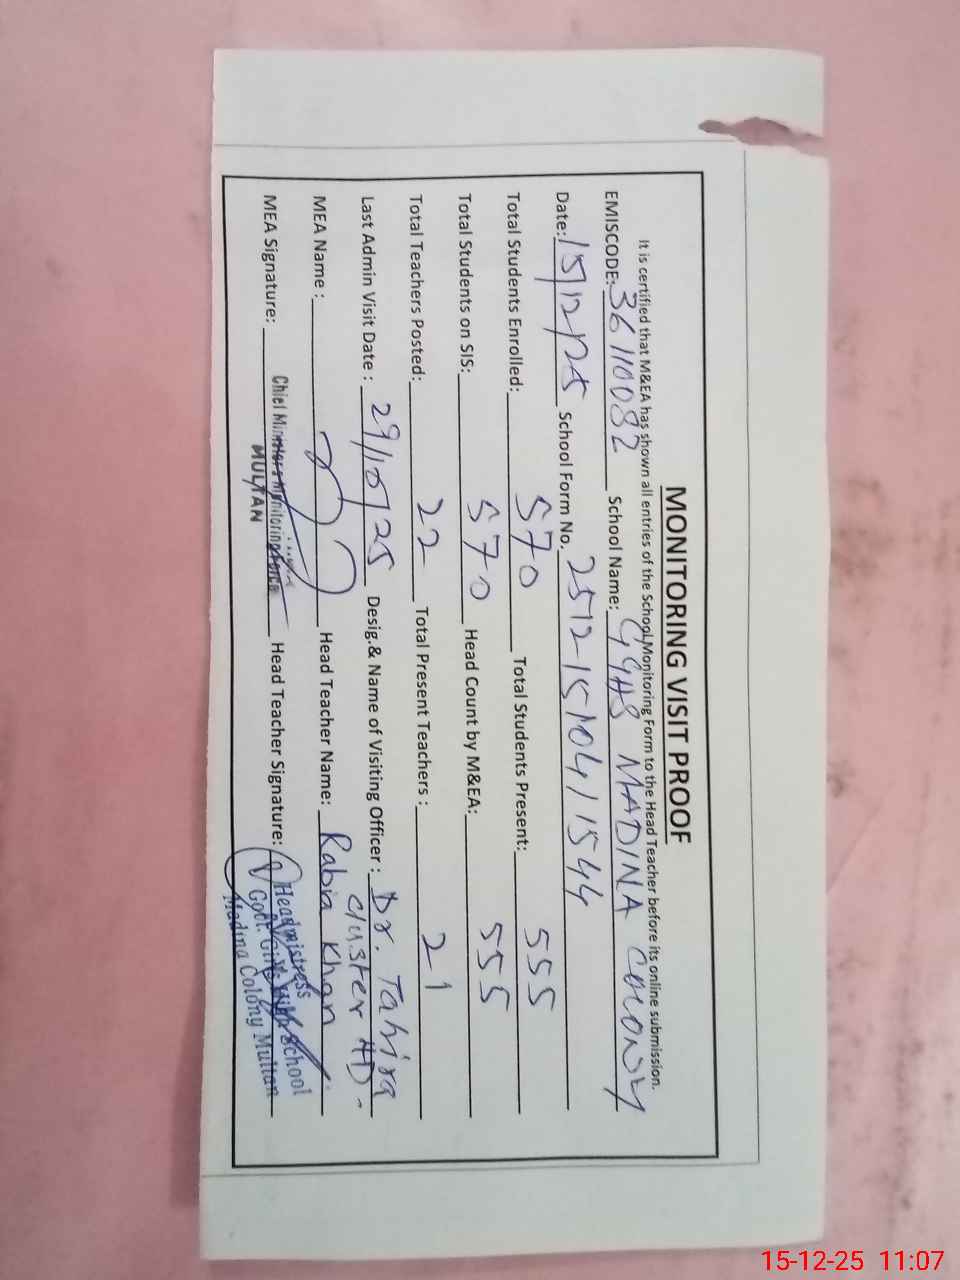 MONITORING VISIT PROOF
It is certified that M&EA has shown all entries of the School Monitoring Form to the Head Teacher before its online submission.
EMISCODE: 36110082 School Name: GGHS MADINA COLONY
Date: 15/12/25 School Form No. 2512151041544
Total Students Enrolled: 570 Total Students Present: 555
Total Students on SIS: 570 Head Count by M&EA: 555
Total Teachers Posted: 22 Total Present Teachers : 21
Last Admin Visit Date : 29/10/25 Desig.& Name of Visiting Officer : Dr. Tahira
cluster HD-
MEA Name : Head Teacher Name: Rabia Khan
MEA Signature: Head Teacher Signature:
Chief Ministers Monitoring Force
MULTAN
Headmistress
Govt. Girls High School
Madina Colony Multan
15-12-25 11:07